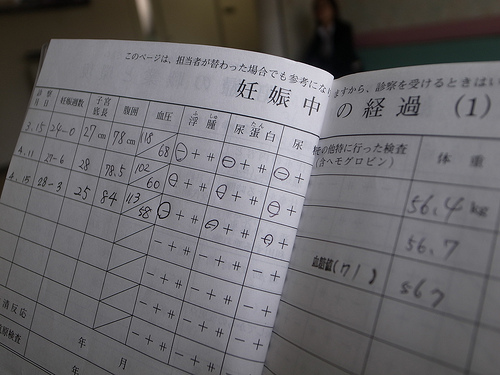 このページは、担当者が替わった場合でも参考になりますから、診察を受けるときはい
妊娠中の経過 (1)
診察月日 妊娠週数 子宮底長 腹囲 血圧 浮腫 尿蛋白 尿 その他特に行った検査(含ヘモグロビン) 体重
3.15 24-0 27cm 78cm 118/68 ㊀ + ⧺ ㊀ + ⧺ ㊀ + 56.4kg
4.11 27-6 28 78.5 102/60 ㊀ + ⧺ ㊀ + ⧺ ㊀ + 56.7
4.15 28-3 25 84 113/58 ㊀ + ⧺ ㊀ + ⧺ ㊀ + 血糖値(71) 567
− + ⧺ − + ⧺ − +
− + ⧺ − + ⧺ − +
− + ⧺ − + ⧺ − +
清反応 年 月
検査 年